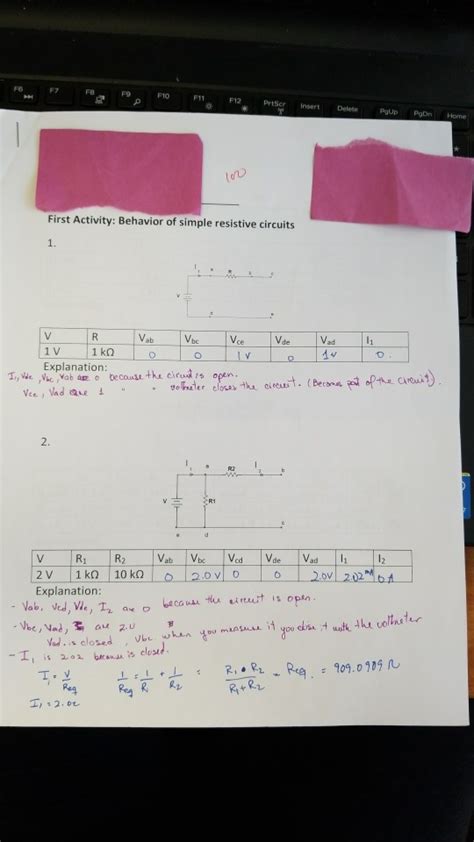 F6 F7 F8 F9 F10 F11 F12 PrtScr Insert Delete PgUp PgDn Home
100
First Activity: Behavior of simple resistive circuits
1.
I
R
V
V R Vab Vbc Vce Vde Vad I1
1 V 1 kΩ 0 0 1V 0 1V 0.
Explanation:
I1, Vde, Vbc, Vab are 0 because the circuit is open.
Vce, Vad are 1 " " voltmeter closes the circuit. (Becomes part of the circuit).
2.
I a R2 I b
V R1
d
V R1 R2 Vab Vbc Vcd Vde Vad I1 I2
2 V 1 kΩ 10 kΩ 0 2.0V 0 0 2.0V 2.02mA 0A
Explanation:
- Vab, Vcd, Vde, I2 are 0 because the circuit is open.
- Vbc, Vad, are 2.0
Vad is closed, Vbc when you measure it you close it with the voltmeter
- I1 is 2.02 because is closed.
I1 = V/Req 1/Req = 1/R1 + 1/R2 = R1 • R2 / R1 + R2 = Req. = 909.0909 Ω
I1 = 2.02